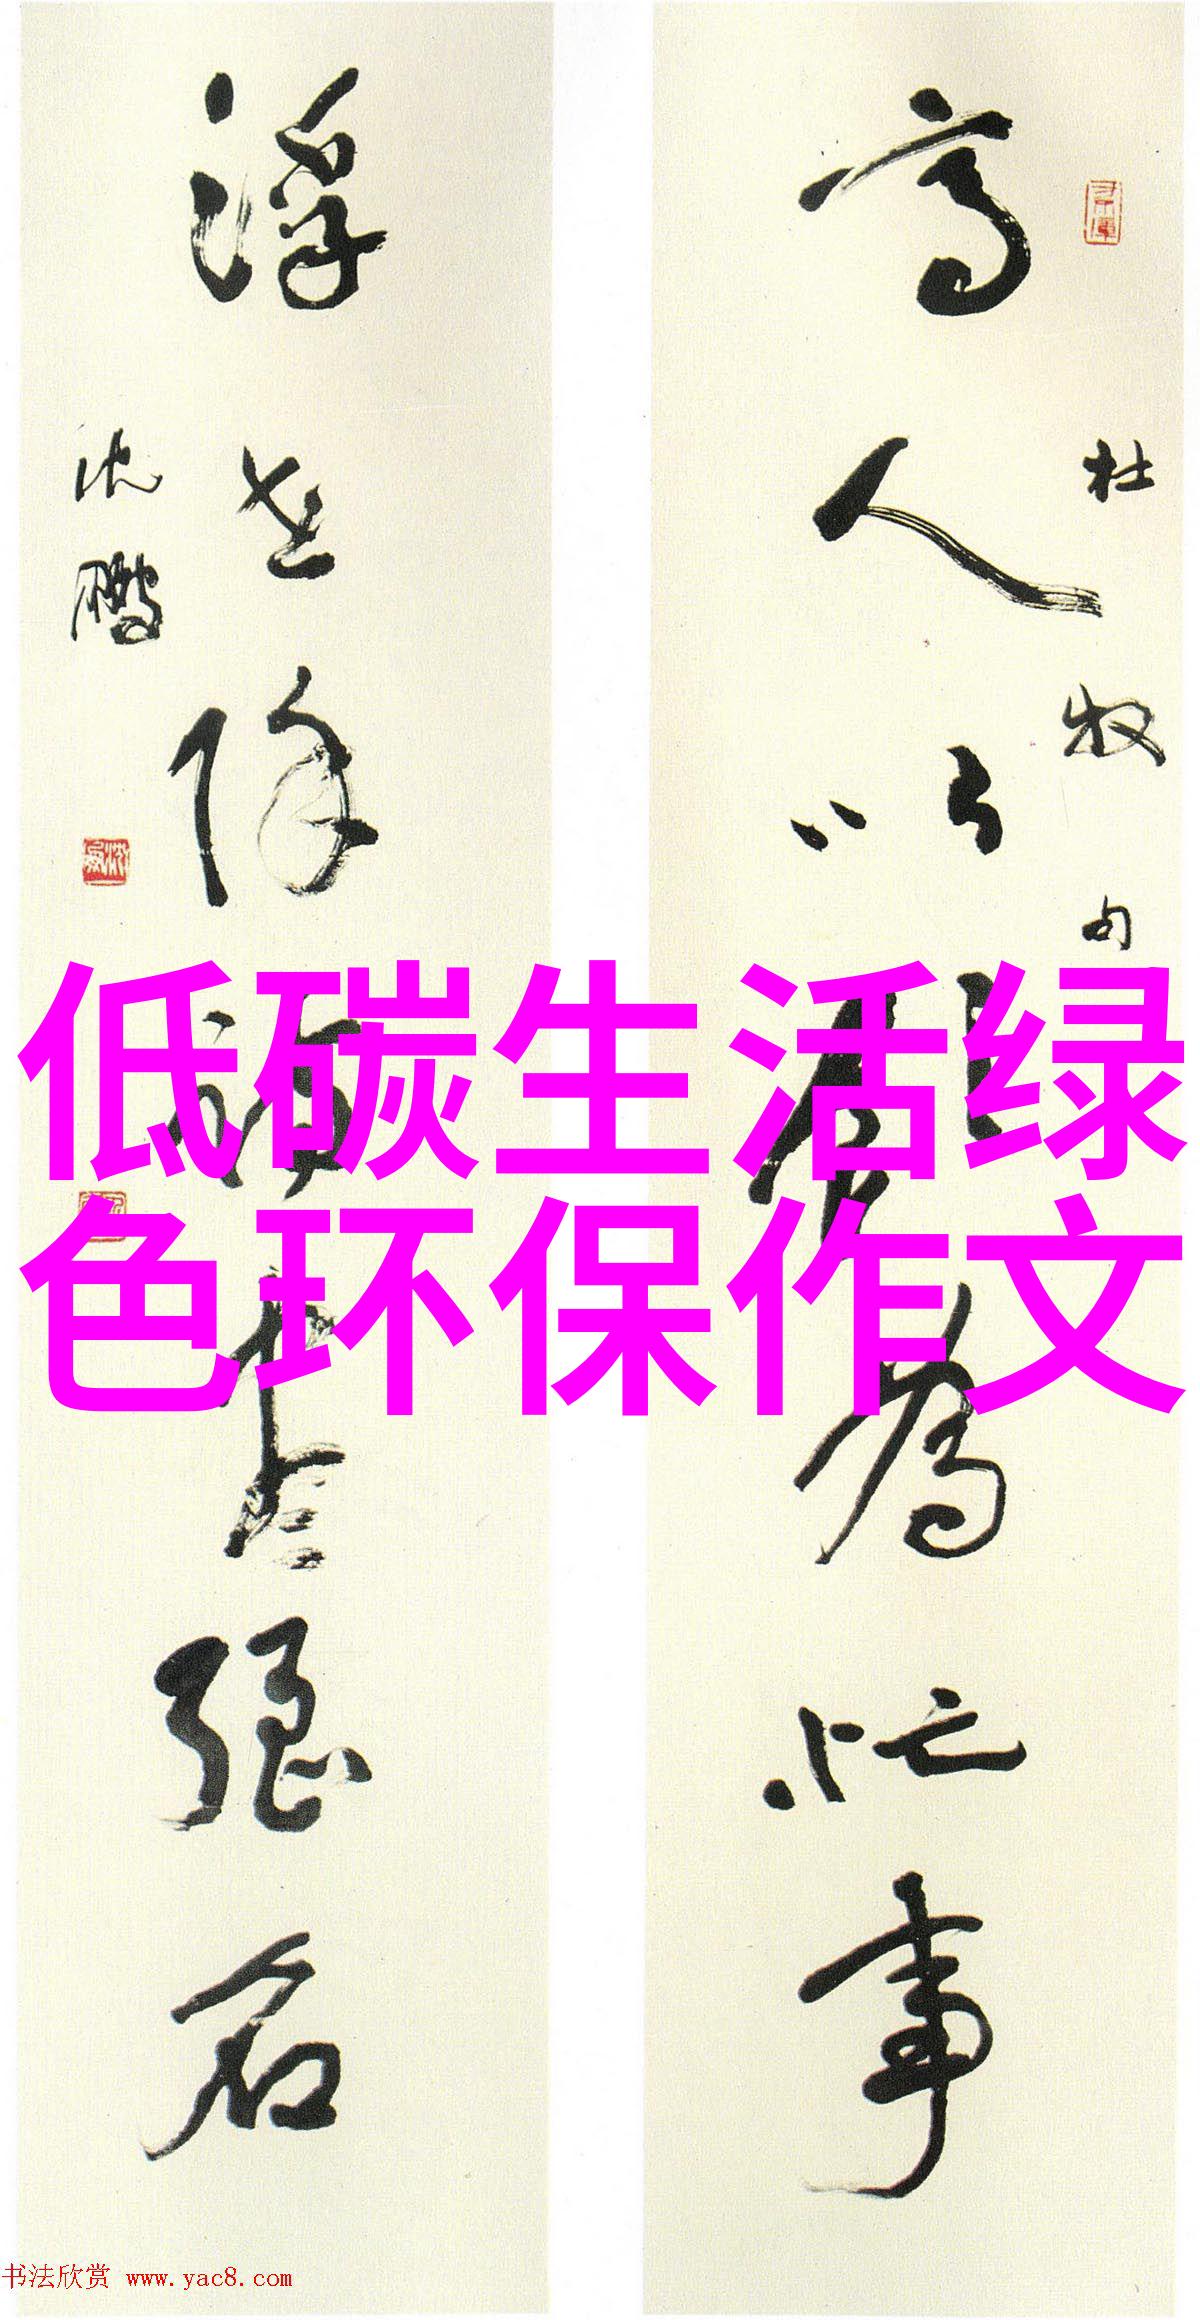 杜牧句
高人以飲為忙事
浮世除詩盡強名
沈鵬
低碳生活绿
色环保作文
书法欣赏 www.yac8.com